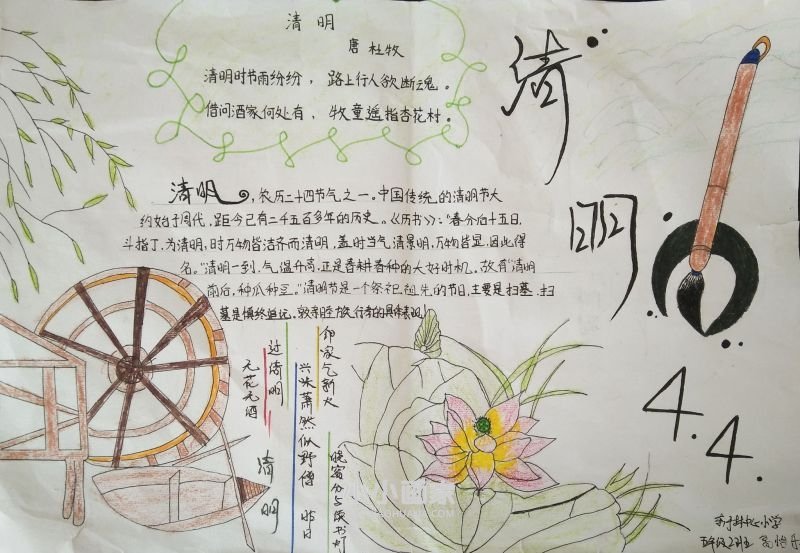 清明
唐 杜牧
清明时节雨纷纷，路上行人欲断魂。
借问酒家何处有，牧童遥指杏花村。
清明，农历二十四节气之一。中国传统的清明节大
约始于周代，距今已有二千五百多年的历史。《历书》："春分后十五日，
斗指丁，为清明，时万物皆洁齐而清明，盖时当气清景明，万物皆显，因此得
名。"清明一到，气温升高，正是春耕春种的大好时机，故有"清明
前后，种瓜种豆。"清明节是一个祭祀祖先的节日，主要是扫墓，扫
墓是慎终追远、敦亲睦族行孝的具体表现
清明
4.4.
清明
无花无酒
过清明
兴味萧然似野僧 昨日
邻家气新火
晓窗分与读书灯
小学
五年级2班